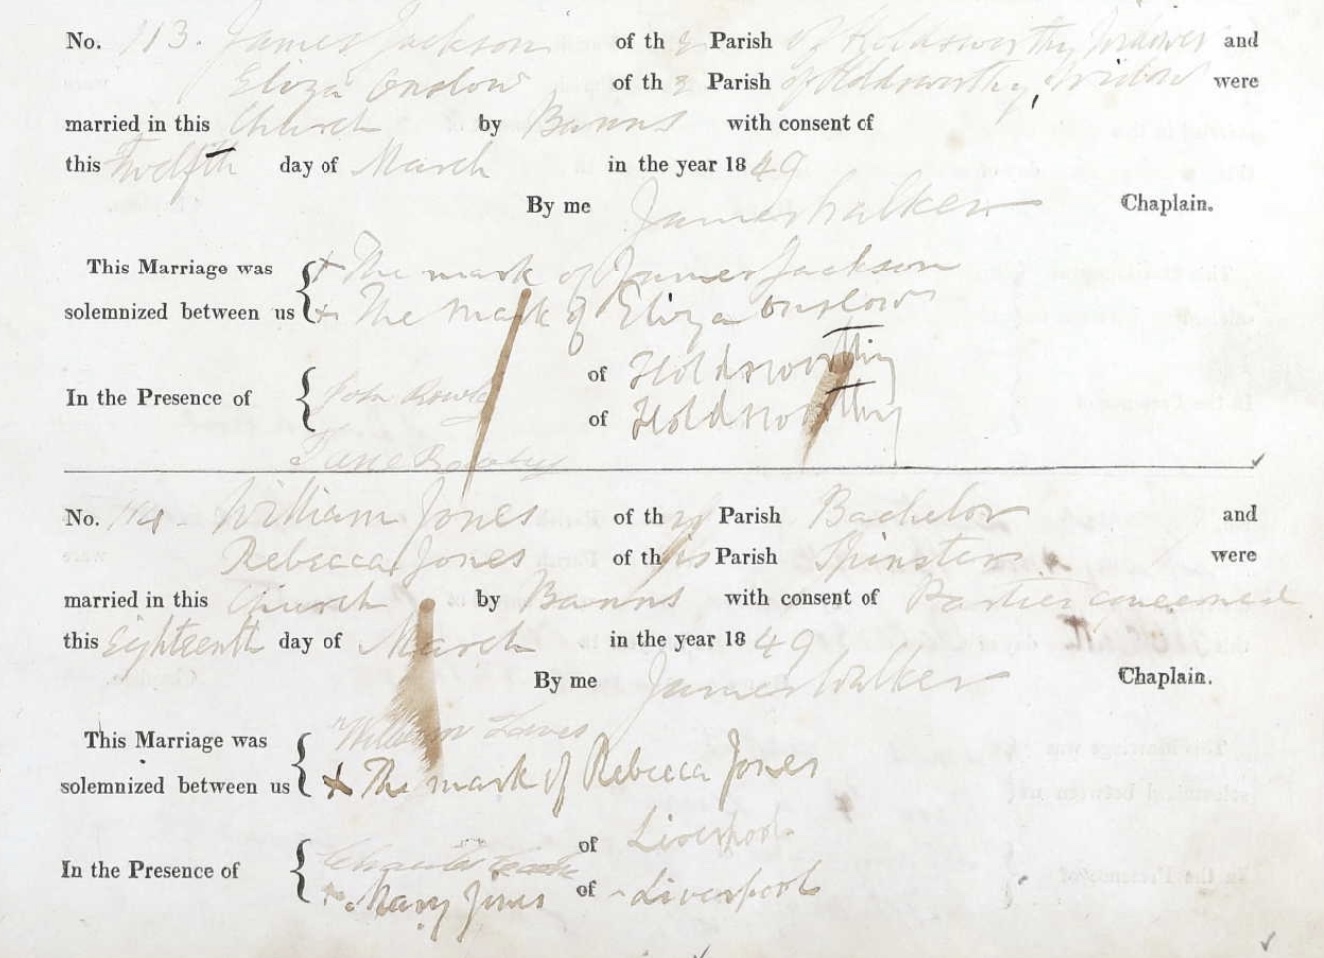 No. 113. James Jackson of the Parish of Holdsworthy, and
Eliza Onslow of the Parish of Holdsworthy, were
married in this Church by Banns with consent of
this Twelfth day of March in the year 1849
By me James Walker Chaplain.
This Marriage was + The mark of James Jackson
solemnized between us + The mark of Eliza Onslow
of Holdsworthy
In the Presence of John
of Holdsworthy
Jane
No. 114. William Jones of this Parish Bachelor and
Rebecca Jones of this Parish Spinster were
married in this Church by Banns with consent of Parties concerned
this Eighteenth day of March in the year 1849
By me James Walker Chaplain.
This Marriage was William
solemnized between us + The mark of Rebecca Jones
of Liverpool
In the Presence of
Mary Jones of Liverpool